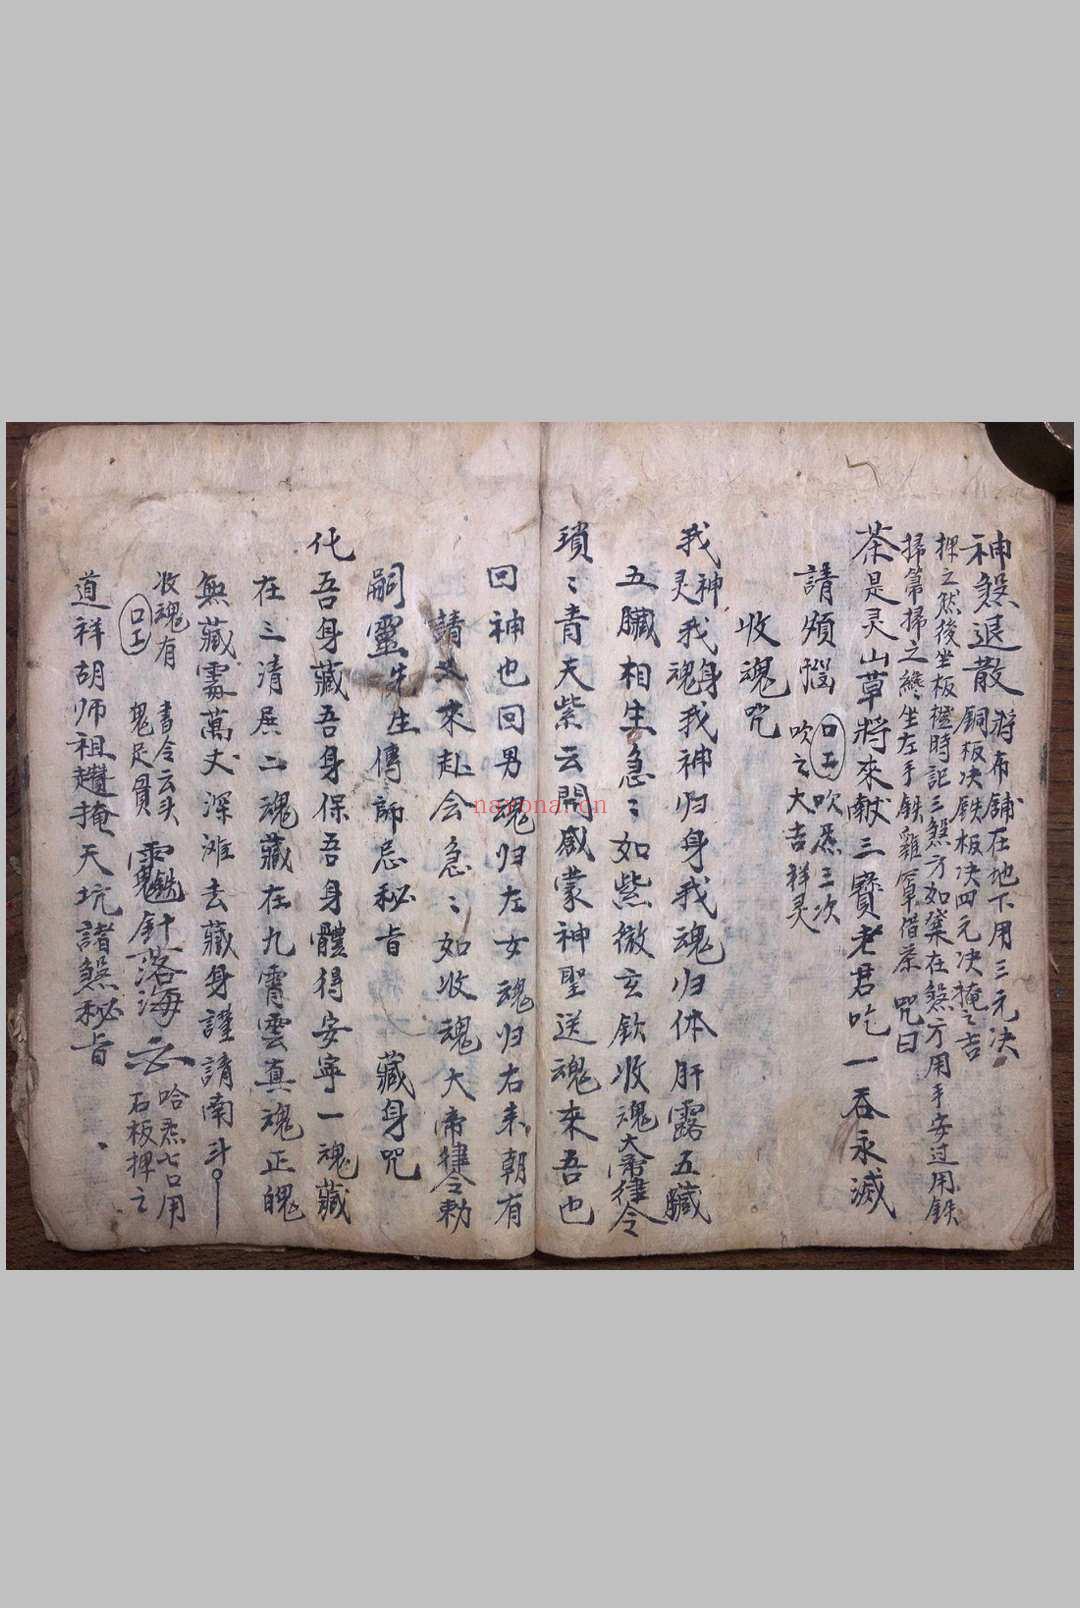 神煞退散 將布鋪在地下用三元決
銅板決鉄板決四元決掩之吉
押之然後坐板櫈時記三煞方如葉在煞方用手安过用鉄
掃箒掃之 坐左手鉄雞罩借茶 咒曰
茶是灵山草將來献三寶老君吃一吞永滅
請煩惱 口工吹炁三次
吹之大吉祥灵
收魂咒
我神我身我神归身我魂归体肝露五臟
灵 魂
五臟相生急〻如紫微玄欽收魂大帝律令
瑣〻青天紫云開感蒙神聖送魂来吾也
回神也回男魂归左女魂归右来朝有
請 来赴会急〻如收魂大帝律令勅
嗣靈先生傳師忌秘旨 藏身咒
化吾身藏吾身保吾身體得安寧一魂藏
在三清 二魂藏在九霄雲真魂正魄
無藏處萬丈深滩去藏身謹請南斗
收魂有 書令云头 鉄 哈炁七口用
口工 鬼足員 針落海 石板押之
道祥胡师祖 掩天坑諸煞秘旨
nayona.cn